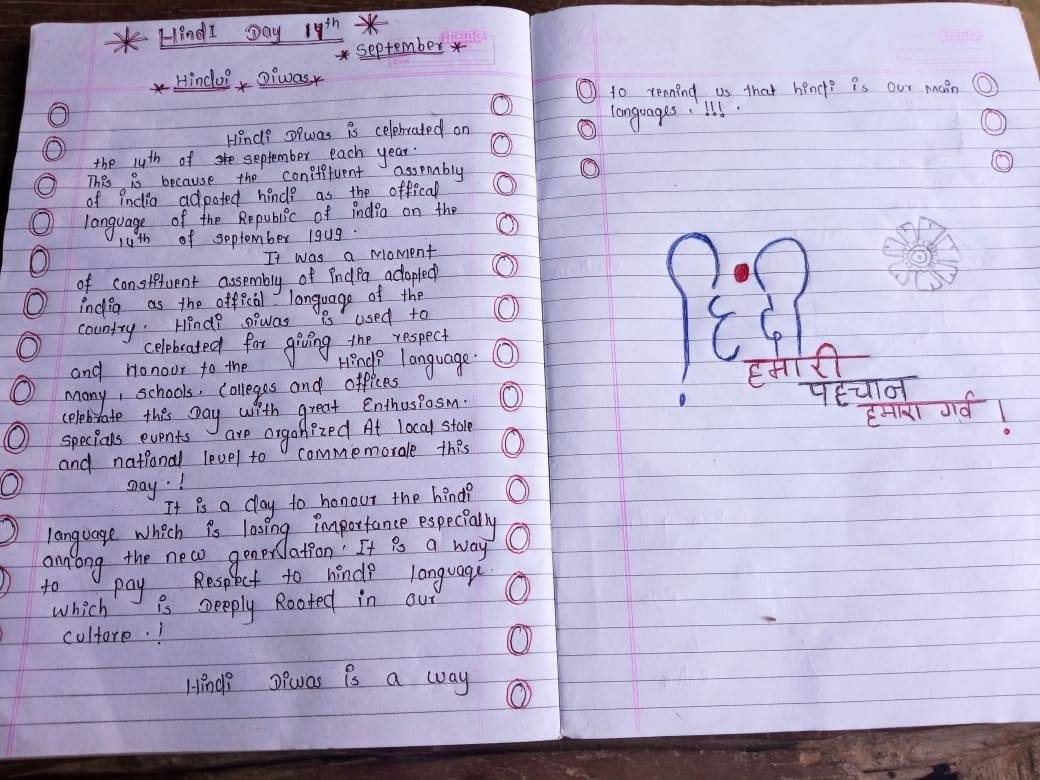 Hindi Day 14th
* September *
* Hindi * Diwas *
Hindi Diwas is celebrated on
the 14th of september each year.
This is because the conititvent assembly
of india adpoted hindi as the offical
language of the Republic of india on the
14th of september 1949.
It was a moment
of constitvent assembly of india adopted
india as the offical language of the
country. Hindi Diwas is used to
celebrated for giving the respect
and Honour to the Hindi language.
many, schools, colleges and offices
celebrate this Day with great Enthusiasm.
specials events are organized At local stole
and national level to commemorale this
Day.!
It is a day to honour the hindi
language which is losing importance especially
among the new generation. It is a way
to pay Respect to hindi language.
which is Deeply Rooted in our
culture.!
Hindi Diwas is a way
to remind us that hindi is our main
languages. !!! .
हिंदी
हमारी
पहचान
हमारा गर्व !